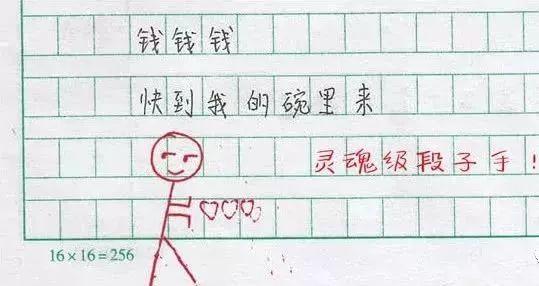 钱钱钱
快到我的碗里来
灵魂级段子手！
16×16=256